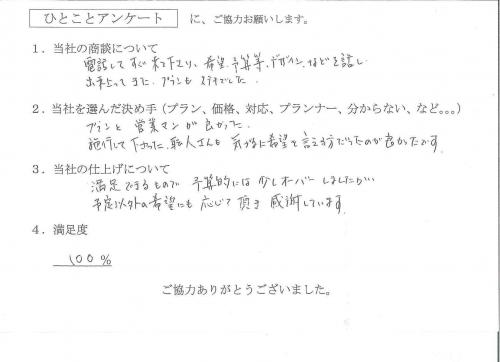 ひとことアンケート に、ご協力お願いします。
1．当社の商談について
電話して すぐ 来て下さり、希望、予算等、デザイン、などを話し
出来上ってきた プランも ステキでした。
2．当社を選んだ決め手（プラン、価格、対応、プランナー、分からない、など。。。）
プランと 営業マンが良かった。
施行して下さった、職人さんも 気がるに希望を言える方だったのが良かったです。
3．当社の仕上げについて
満足できるもので 予算的には 少しオーバーしましたが、
予定以外の希望にも 応じて頂き 感謝しています。
4．満足度
100％
ご協力ありがとうございました。